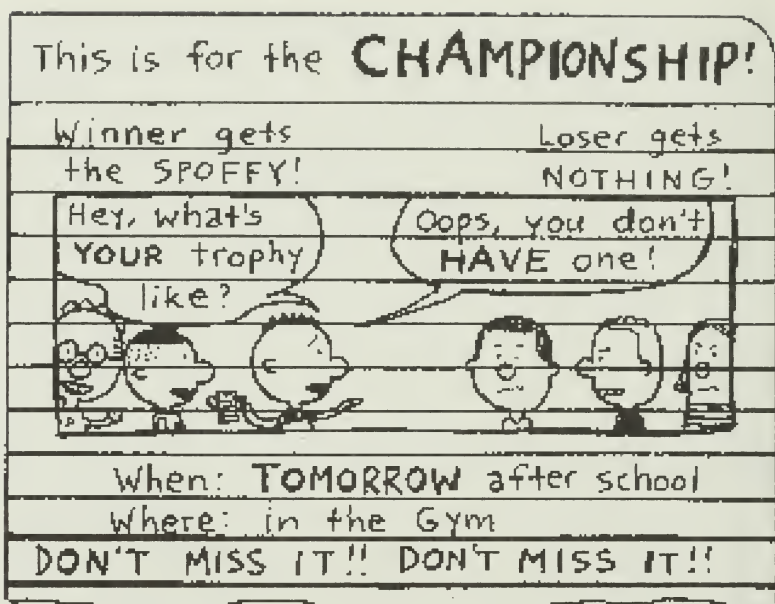 This is for the CHAMPIONSHIP!
Winner gets
the SPOFFY!
Loser gets
NOTHING!
Hey, what's
YOUR trophy
like?
Oops, you don't
HAVE one!
When: TOMORROW after school
Where: in the Gym
DON'T MISS IT!! DON'T MISS IT!!